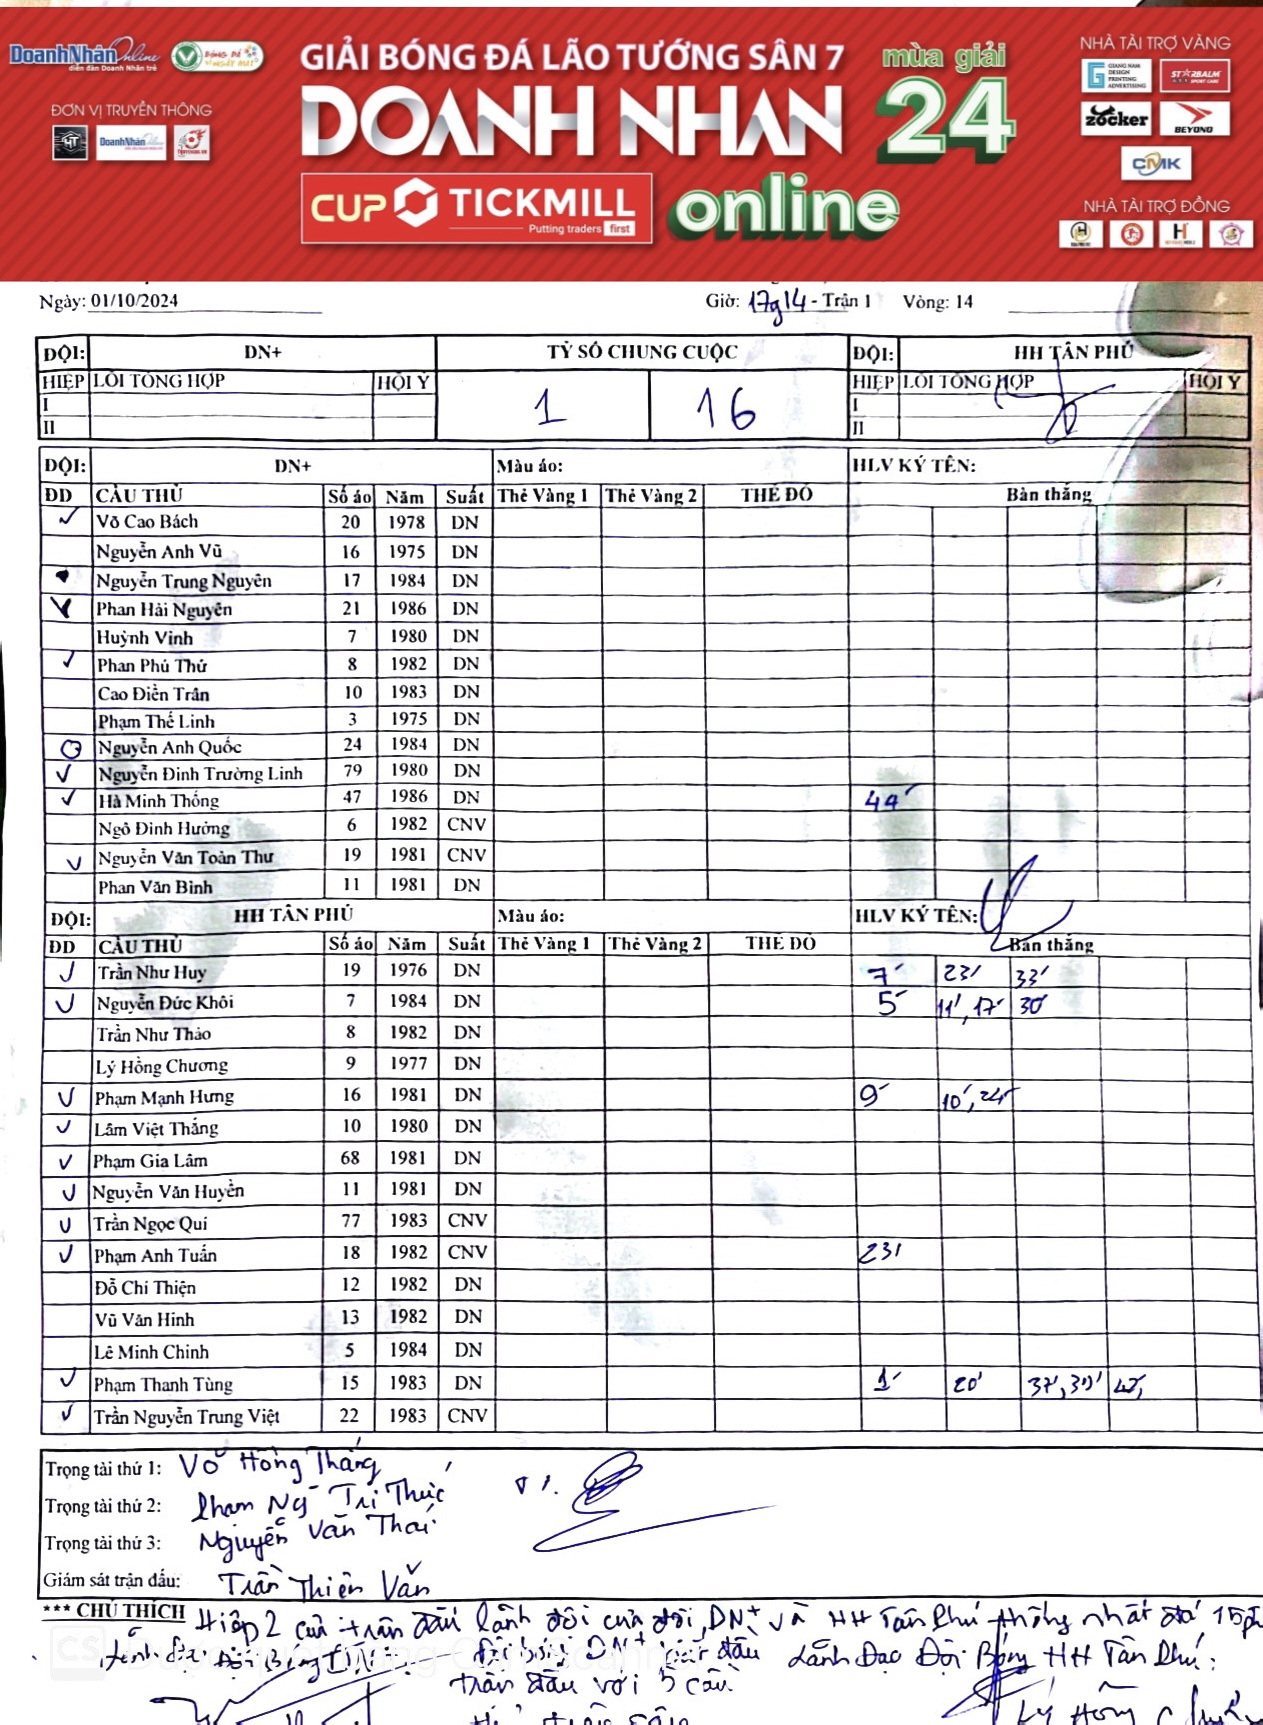 DoanhNhânOnline
diễn đàn Doanh Nhân trẻ
BÓNG ĐÁ
ĐƠN VỊ TRUYỀN THÔNG
HT
DoanhNhânOnline
GIẢI BÓNG ĐÁ LÃO TƯỚNG SÂN 7
DOANH NHAN
mùa giải
24
CUP TICKMILL
Putting traders first
online
NHÀ TÀI TRỢ VÀNG
GIANG NAM
DESIGN
PRINTING
ADVERTISING
STARBALM
SPORT CARE
zocker
BEYOND
CMK
NHÀ TÀI TRỢ ĐỒNG
Ngày: 01/10/2024 Giờ: 17g14 - Trận 1 Vòng: 14
ĐỘI: DN+ TỶ SỐ CHUNG CUỘC ĐỘI: HH TÂN PHÚ
HIỆP LỖI TỔNG HỢP HỘI Ý 1 16 HIỆP LỖI TỔNG HỢP HỘI Ý
I I
II II
ĐỘI: DN+ Màu áo: HLV KÝ TÊN:
ĐD CẦU THỦ Số áo Năm Suất Thẻ Vàng 1 Thẻ Vàng 2 THẺ ĐỎ Bàn thắng
✓ Võ Cao Bách 20 1978 DN
Nguyễn Anh Vũ 16 1975 DN
Nguyễn Trung Nguyên 17 1984 DN
Phan Hải Nguyên 21 1986 DN
Huỳnh Vinh 7 1980 DN
✓ Phan Phú Thứ 8 1982 DN
Cao Điền Trân 10 1983 DN
Phạm Thế Linh 3 1975 DN
Nguyễn Anh Quốc 24 1984 DN
✓ Nguyễn Đình Trường Linh 79 1980 DN
✓ Hà Minh Thống 47 1986 DN 44'
Ngô Đình Hưởng 6 1982 CNV
✓ Nguyễn Văn Toàn Thư 19 1981 CNV
Phan Văn Bình 11 1981 DN
ĐỘI: HH TÂN PHÚ Màu áo: HLV KÝ TÊN:
ĐD CẦU THỦ Số áo Năm Suất Thẻ Vàng 1 Thẻ Vàng 2 THẺ ĐỎ Bàn thắng
✓ Trần Như Huy 19 1976 DN 7' 23' 33'
✓ Nguyễn Đức Khôi 7 1984 DN 5' 11', 17' 30'
Trần Như Thảo 8 1982 DN
Lý Hồng Chương 9 1977 DN
✓ Phạm Mạnh Hưng 16 1981 DN 9' 10', 24'
✓ Lâm Việt Thắng 10 1980 DN
✓ Phạm Gia Lâm 68 1981 DN
✓ Nguyễn Văn Huyền 11 1981 DN
✓ Trần Ngọc Qui 77 1983 CNV
✓ Phạm Anh Tuấn 18 1982 CNV 23'
Đỗ Chí Thiện 12 1982 DN
Vũ Văn Hinh 13 1982 DN
Lê Minh Chinh 5 1984 DN
✓ Phạm Thanh Tùng 15 1983 DN 1' 20' 37', 39'
✓ Trần Nguyễn Trung Việt 22 1983 CNV
Trọng tài thứ 1: Võ Hồng Thắng
Trọng tài thứ 2: Phạm Ng Tri Thức
Trọng tài thứ 3: Nguyễn Văn Thai
Giám sát trận đấu: Trần Thiện Văn
*** CHÚ THÍCH Hiệp 2 của trận đấu lãnh đội của đội DN+ và HH Tân Phú thống nhất đá 15p
CS Đội Bóng DN+ đội bóng DN+ bắt đầu Lãnh Đạo Đội Bóng HH Tân Phú:
trận đấu với 5 cầu
Lý Hồng